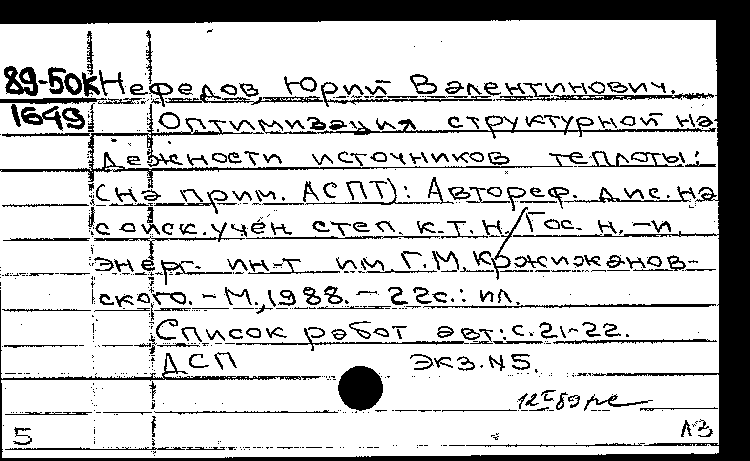 89-50к Нефедов Юрий Валентинович.
1649 Оптимизация структурной на-
дежности источников теплоты:
(на прим. АСПТ): Автореф. дис. на
соиск. учен. степ. к.т.н./Гос. н.-и.
энерг. ин-т им. Г.М. Кржижанов-
ского. - М., 1988. - 22с.: ил.
Список работ авт.: с. 21-22.
ДСП Экз. N5.
12 I 89
5 ЛЗ